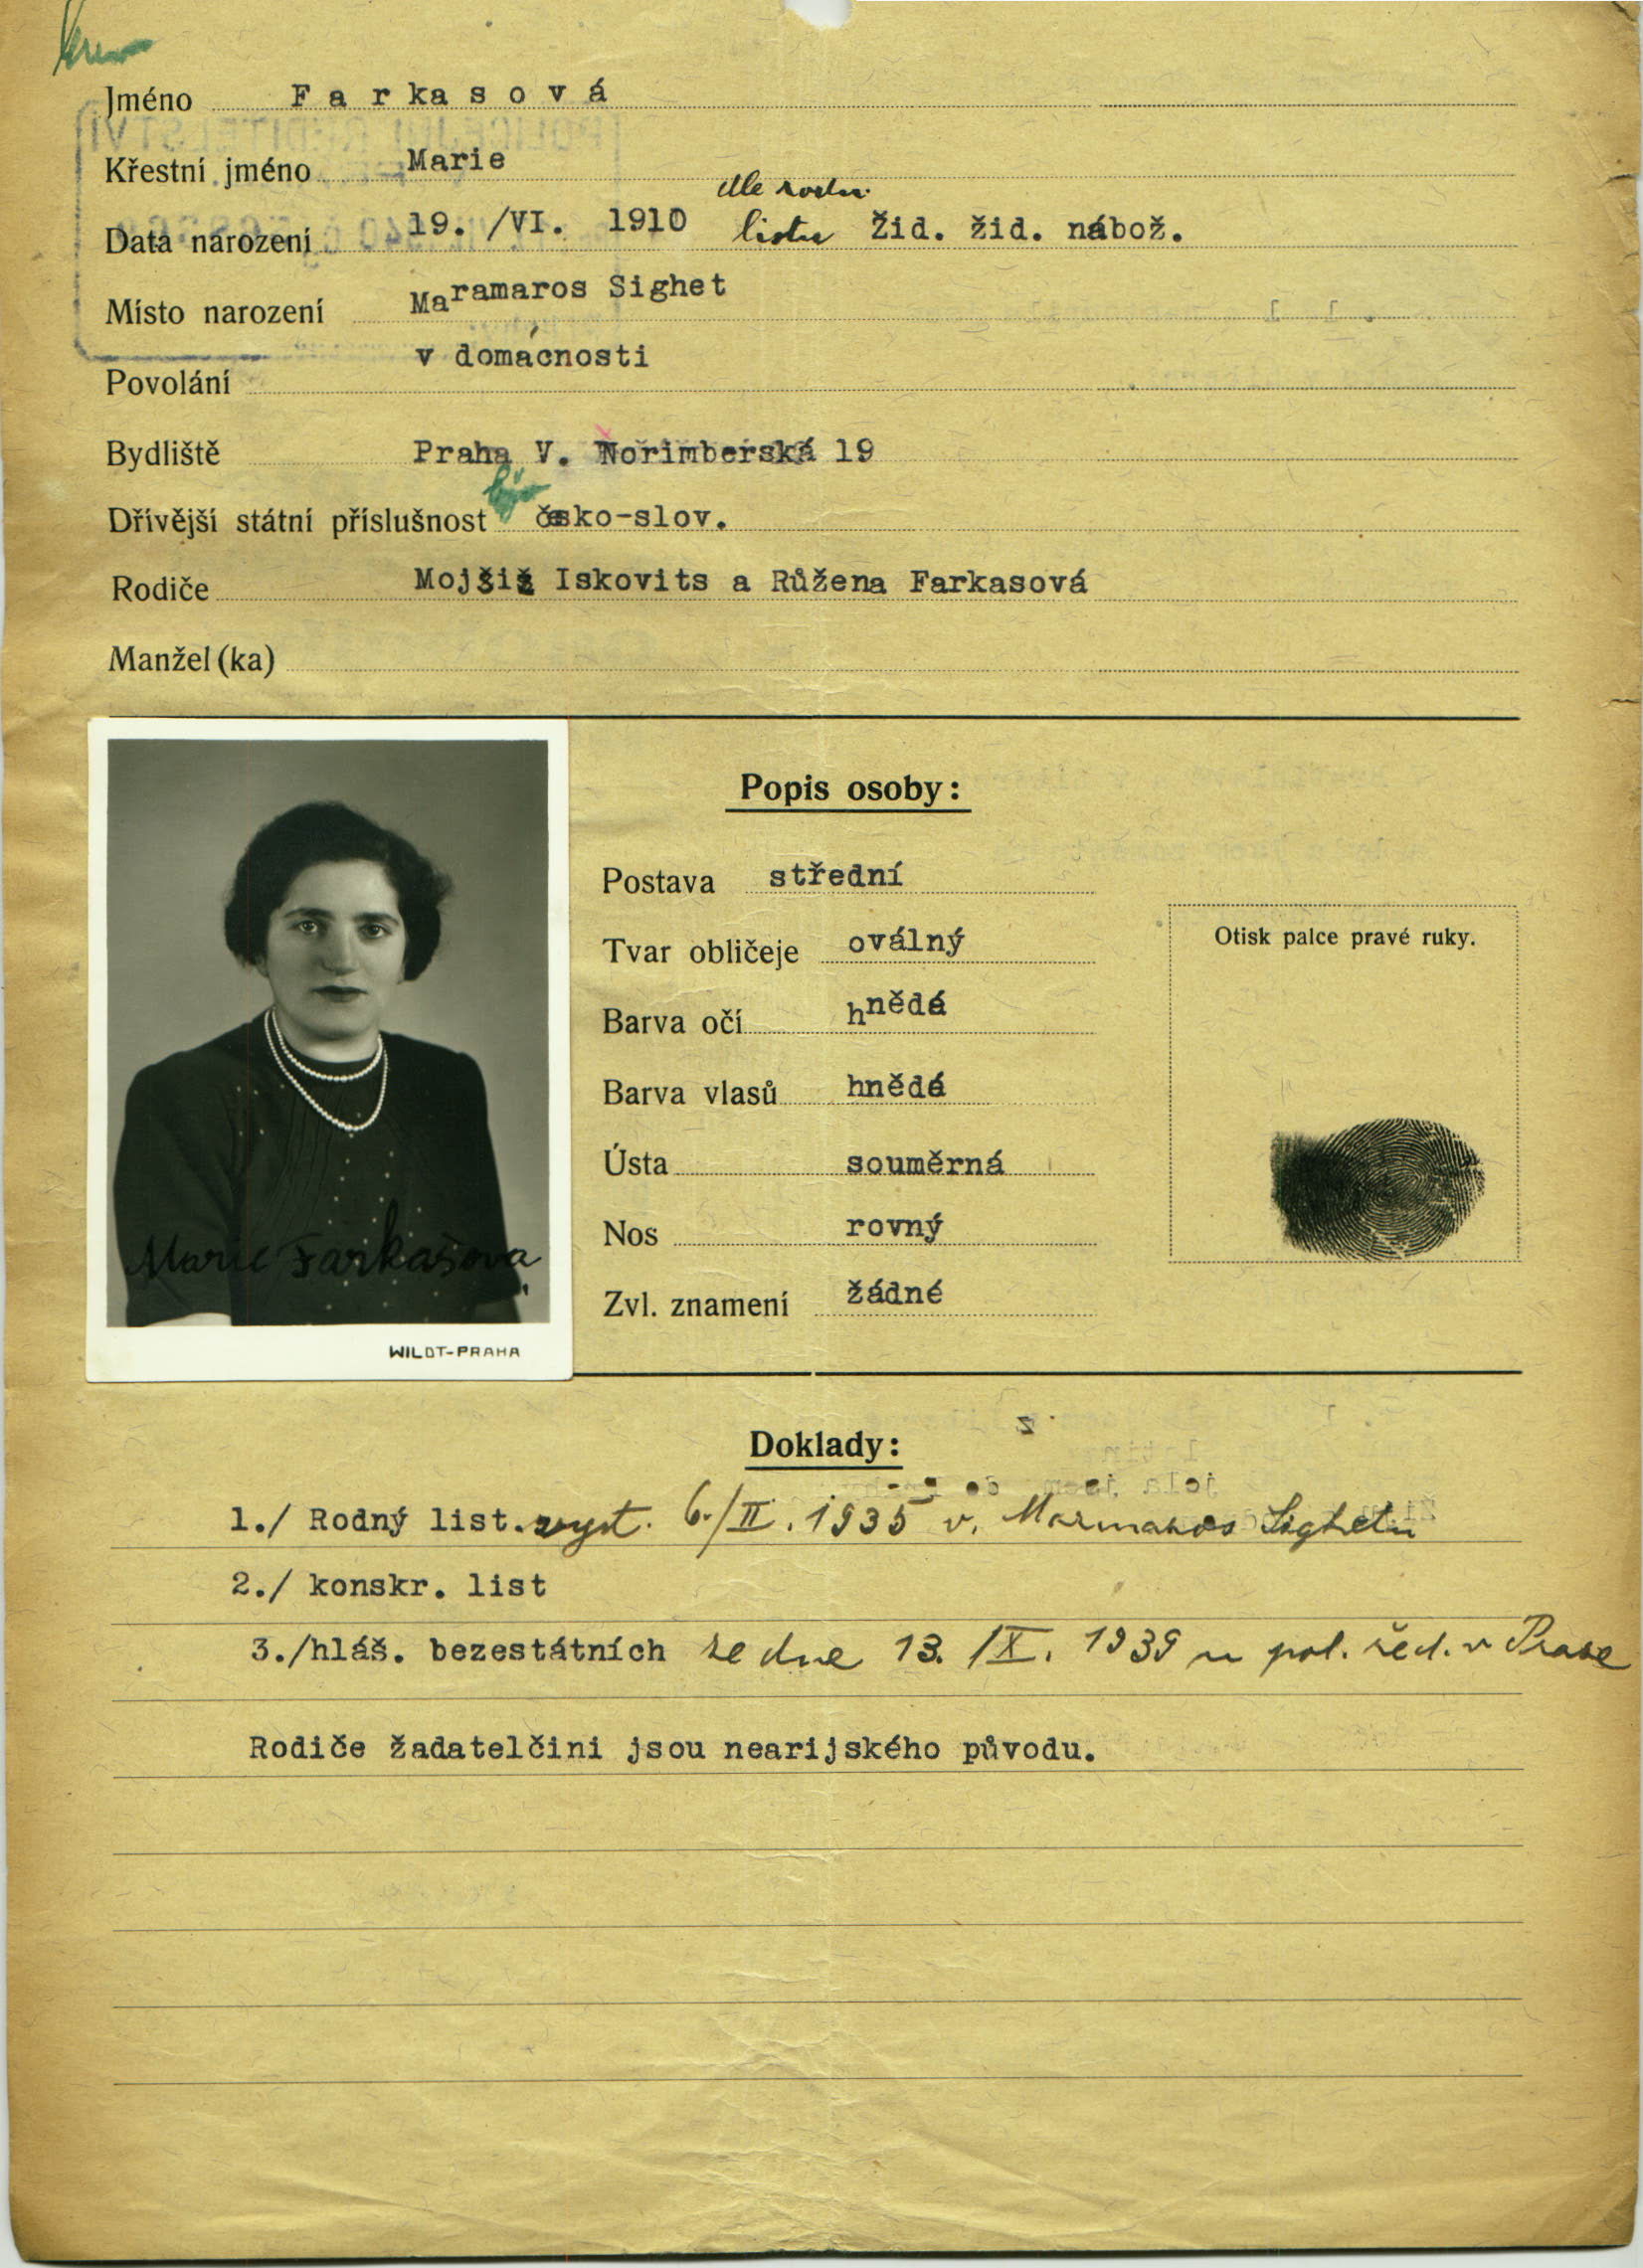 Jméno F a r ka s o v á
Křestní jméno Marie
dle rodn.
Data narození 19. /VI. 1910 listu Žid. žid. nábož.
Místo narození Maramaros Sighet
Povolání v domácnosti
Bydliště Praha V. Norimberská 19
Dřívější státní příslušnost býv. česko-slov.
Rodiče Mojšiš Iskovits a Růžena Farkasová
Manžel(ka)
Popis osoby:
Postava střední
Tvar obličeje oválný
Barva očí hnědé
Barva vlasů hnědé
Ústa souměrná
Nos rovný
Zvl. znamení žádné
Otisk palce pravé ruky.
Marie Farkašova
WILDT-PRAHA
Doklady:
1./ Rodný list. vyst. 6./II. 1935 v. Marmaros Sighetu
2./ konskr. list
3./hláš. bezestátních ze dne 13. IX. 1939 u pol. řed. v Praze
Rodiče žadatelčini jsou nearijského původu.